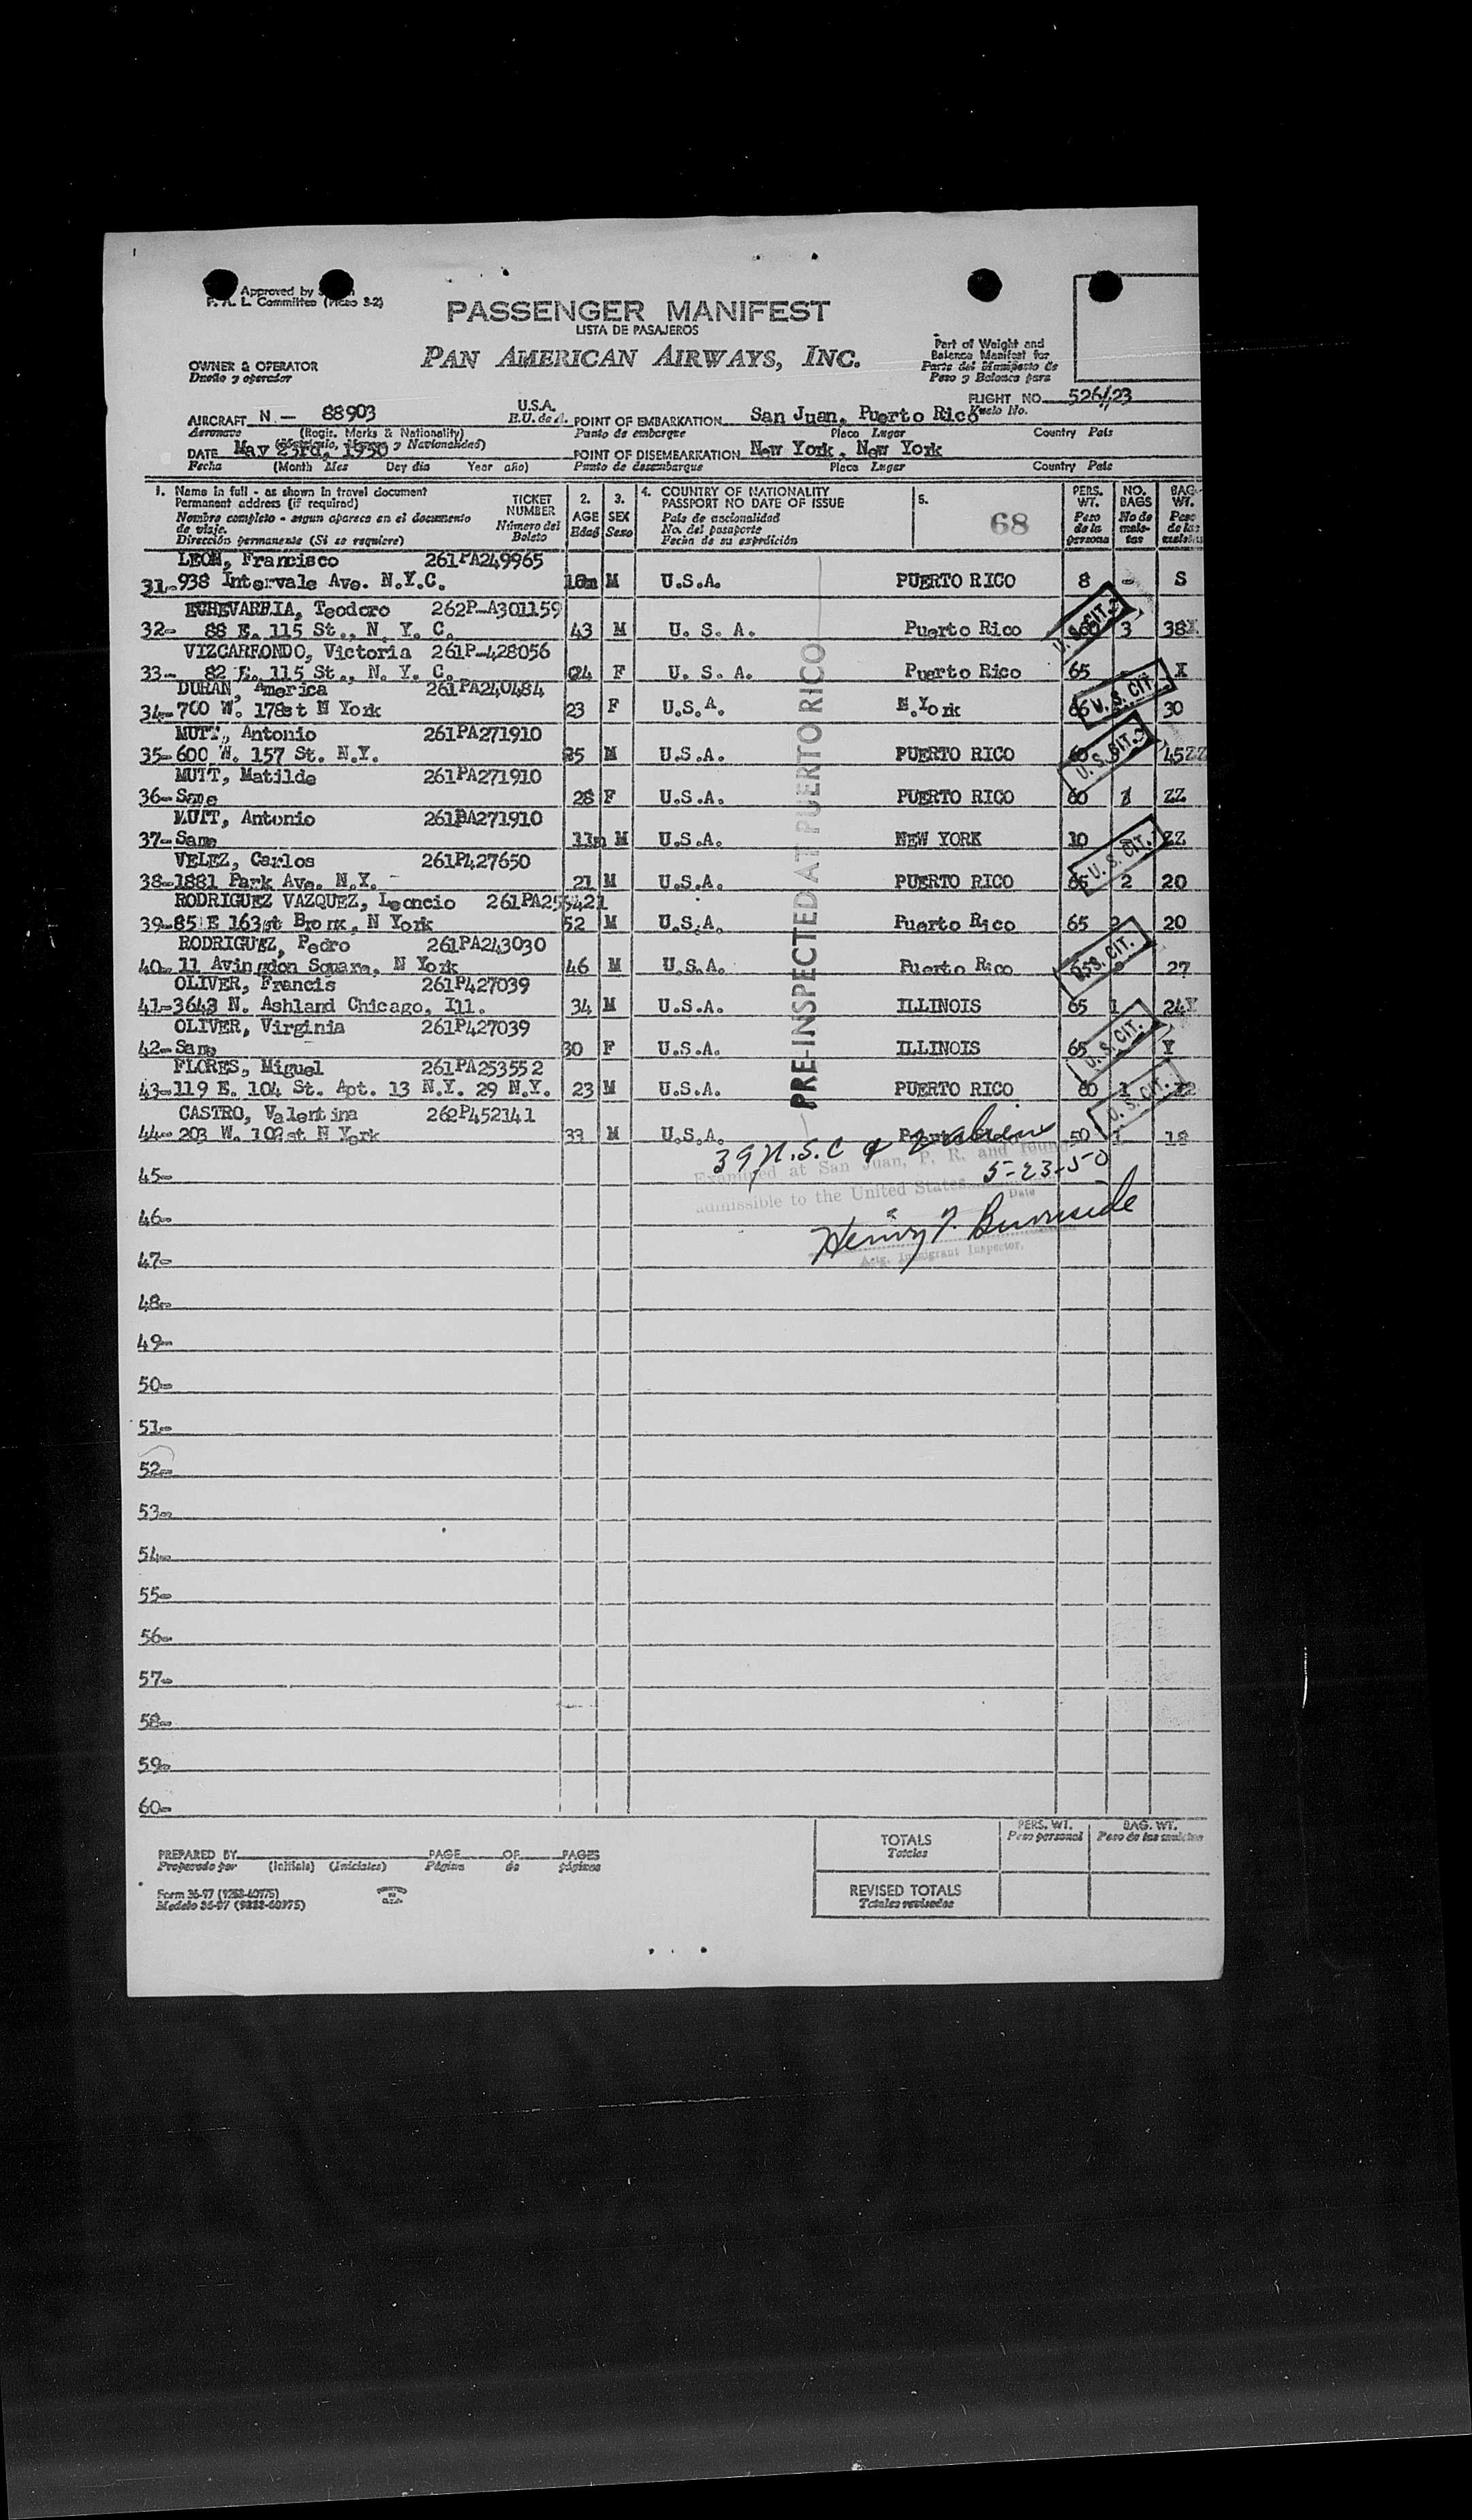 Approved by
F. A. L. Committee (Piceo 3-2)
PASSENGER MANIFEST
LISTA DE PASAJEROS
PAN AMERICAN AIRWAYS, INC.
OWNER & OPERATOR
Dueño y operador
Part of Weight and
Balance Manifest for
Parte del Manifiesto de
Peso y Balance para
FLIGHT NO. 526/23
Vuelo No.
AIRCRAFT N.— 88903 U.S.A.
Aeronave (Regis. Marks & Nationality) E.U. de A.
POINT OF EMBARKATION San Juan, Puerto Rico
Punto de embarque Place Lugar Country País
DATE May 23rd, 1950
Fecha (Month Mes Day día Year año)
POINT OF DISEMBARKATION New York, New York
Punto de desembarque Place Lugar Country País
1. Name in full - as shown in travel document
Permanent address (if required)
Nombre completo - segun aparece en el documento
de viaje.
Dirección permanente (Si se requiere)
TICKET NUMBER
Número del Boleto
2. AGE Edad
3. SEX Sexo
4. COUNTRY OF NATIONALITY
PASSPORT NO DATE OF ISSUE
País de nacionalidad
No. del pasaporte
Fecha de su expedición
5. 68
PERS. WT. Peso de la persona
NO. BAGS No de maletas
BAG. WT. Peso de las maletas
LEON, Francisco 261PA249965
31-938 Intervale Ave. N.Y.C. 18m M U.S.A. PUERTO RICO 8 - S
ECHEVARRIA, Teodoro 262P-A301159
32- 88 E. 115 St., N. Y. C. 43 M U. S. A. Puerto Rico 3 38X
VIZCARRONDO, Victoria 261P-428056
33- 82 E. 115 St., N. Y. C. 24 F U. S. A. Puerto Rico 65 X
DURAN, America 261PA240484
34-700 W. 178st N York 23 F U.S.A. N.York 30
MUTT, Antonio 261PA271910
35-600 W. 157 St. N.Y. M U.S.A. PUERTO RICO 60 45ZZ
MUTT, Matilde 261PA271910
36-Same 28 F U.S.A. PUERTO RICO 60 ZZ
MUTT, Antonio 261PA271910
37-Same 11m M U.S.A. NEW YORK 10 ZZ
VELEZ, Carlos 261P427650
38-1881 Park Ave. N.Y. 21 M U.S.A. PUERTO RICO 65 2 20
RODRIGUEZ VAZQUEZ, Leoncio
39-851 E 163st Bronx, N York 52 M U.S.A. Puerto Rico 65 2 20
RODRIGUEZ, Pedro 261PA243030
40-11 Avingdon Square, N York 46 M U.S.A. Puerto Rico 27
OLIVER, Francis 261P427039
41-3643 N. Ashland Chicago, Ill. 34 M U.S.A. ILLINOIS 65 1 24Y
OLIVER, Virginia 261P427039
42-Same 30 F U.S.A. ILLINOIS 65 Y
FLORES, Miguel 261PA253552
43-119 E. 104 St. Apt. 13 N.Y. 29 N.Y. 23 M U.S.A. PUERTO RICO 60 1
CASTRO, Valentina 262P452141
44- 203 W. 102st N York 33 M U.S.A. 50 1 18
U. S. CIT.
U. S. CIT.
U. S. CIT.
U. S. CIT.
U. S. CIT.
U. S. CIT.
U. S. CIT.
PRE-INSPECTED AT PUERTO RICO
39 U.S.C & 2 aliens
Examined at San Juan, P. R. and found
5-23-50
admissible to the United States
Date
Henry T. Burnside
Actg. Immigrant Inspector.
45-
46-
47-
48-
49-
50-
51-
52-
53-
54-
55-
56-
57-
58-
59-
60-
PREPARED BY PAGE OF PAGES
Preparado por (Initials) (Iniciales) Página de páginas
Form 36-97 (9288-40975)
TOTALS
Totales
PERS. WT.
Peso personal
BAG. WT.
REVISED TOTALS
Totales revisados